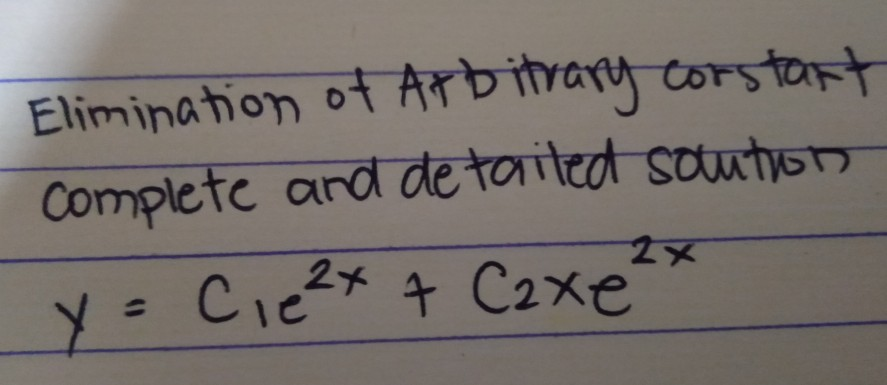 Elimination of Arbitrary constant
complete and detailed solution
y = C₁e²ˣ + C₂xe²ˣ